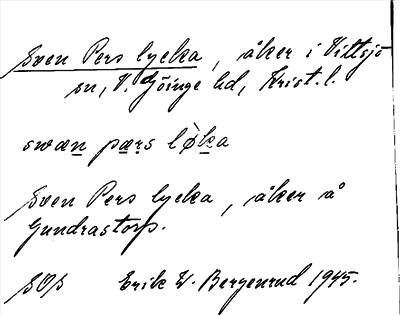 Sven Pers lycka, åker i Vittsjö
sn, V. Göinge hd, Krist. l.
swæn pærs løka
Sven Pers lycka, åker å
Gundrastorp.
Erik W. Bergenrud 1945.